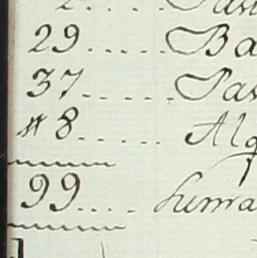 29.....Ba
37.....Pas
#8.....Alg
99....Suma